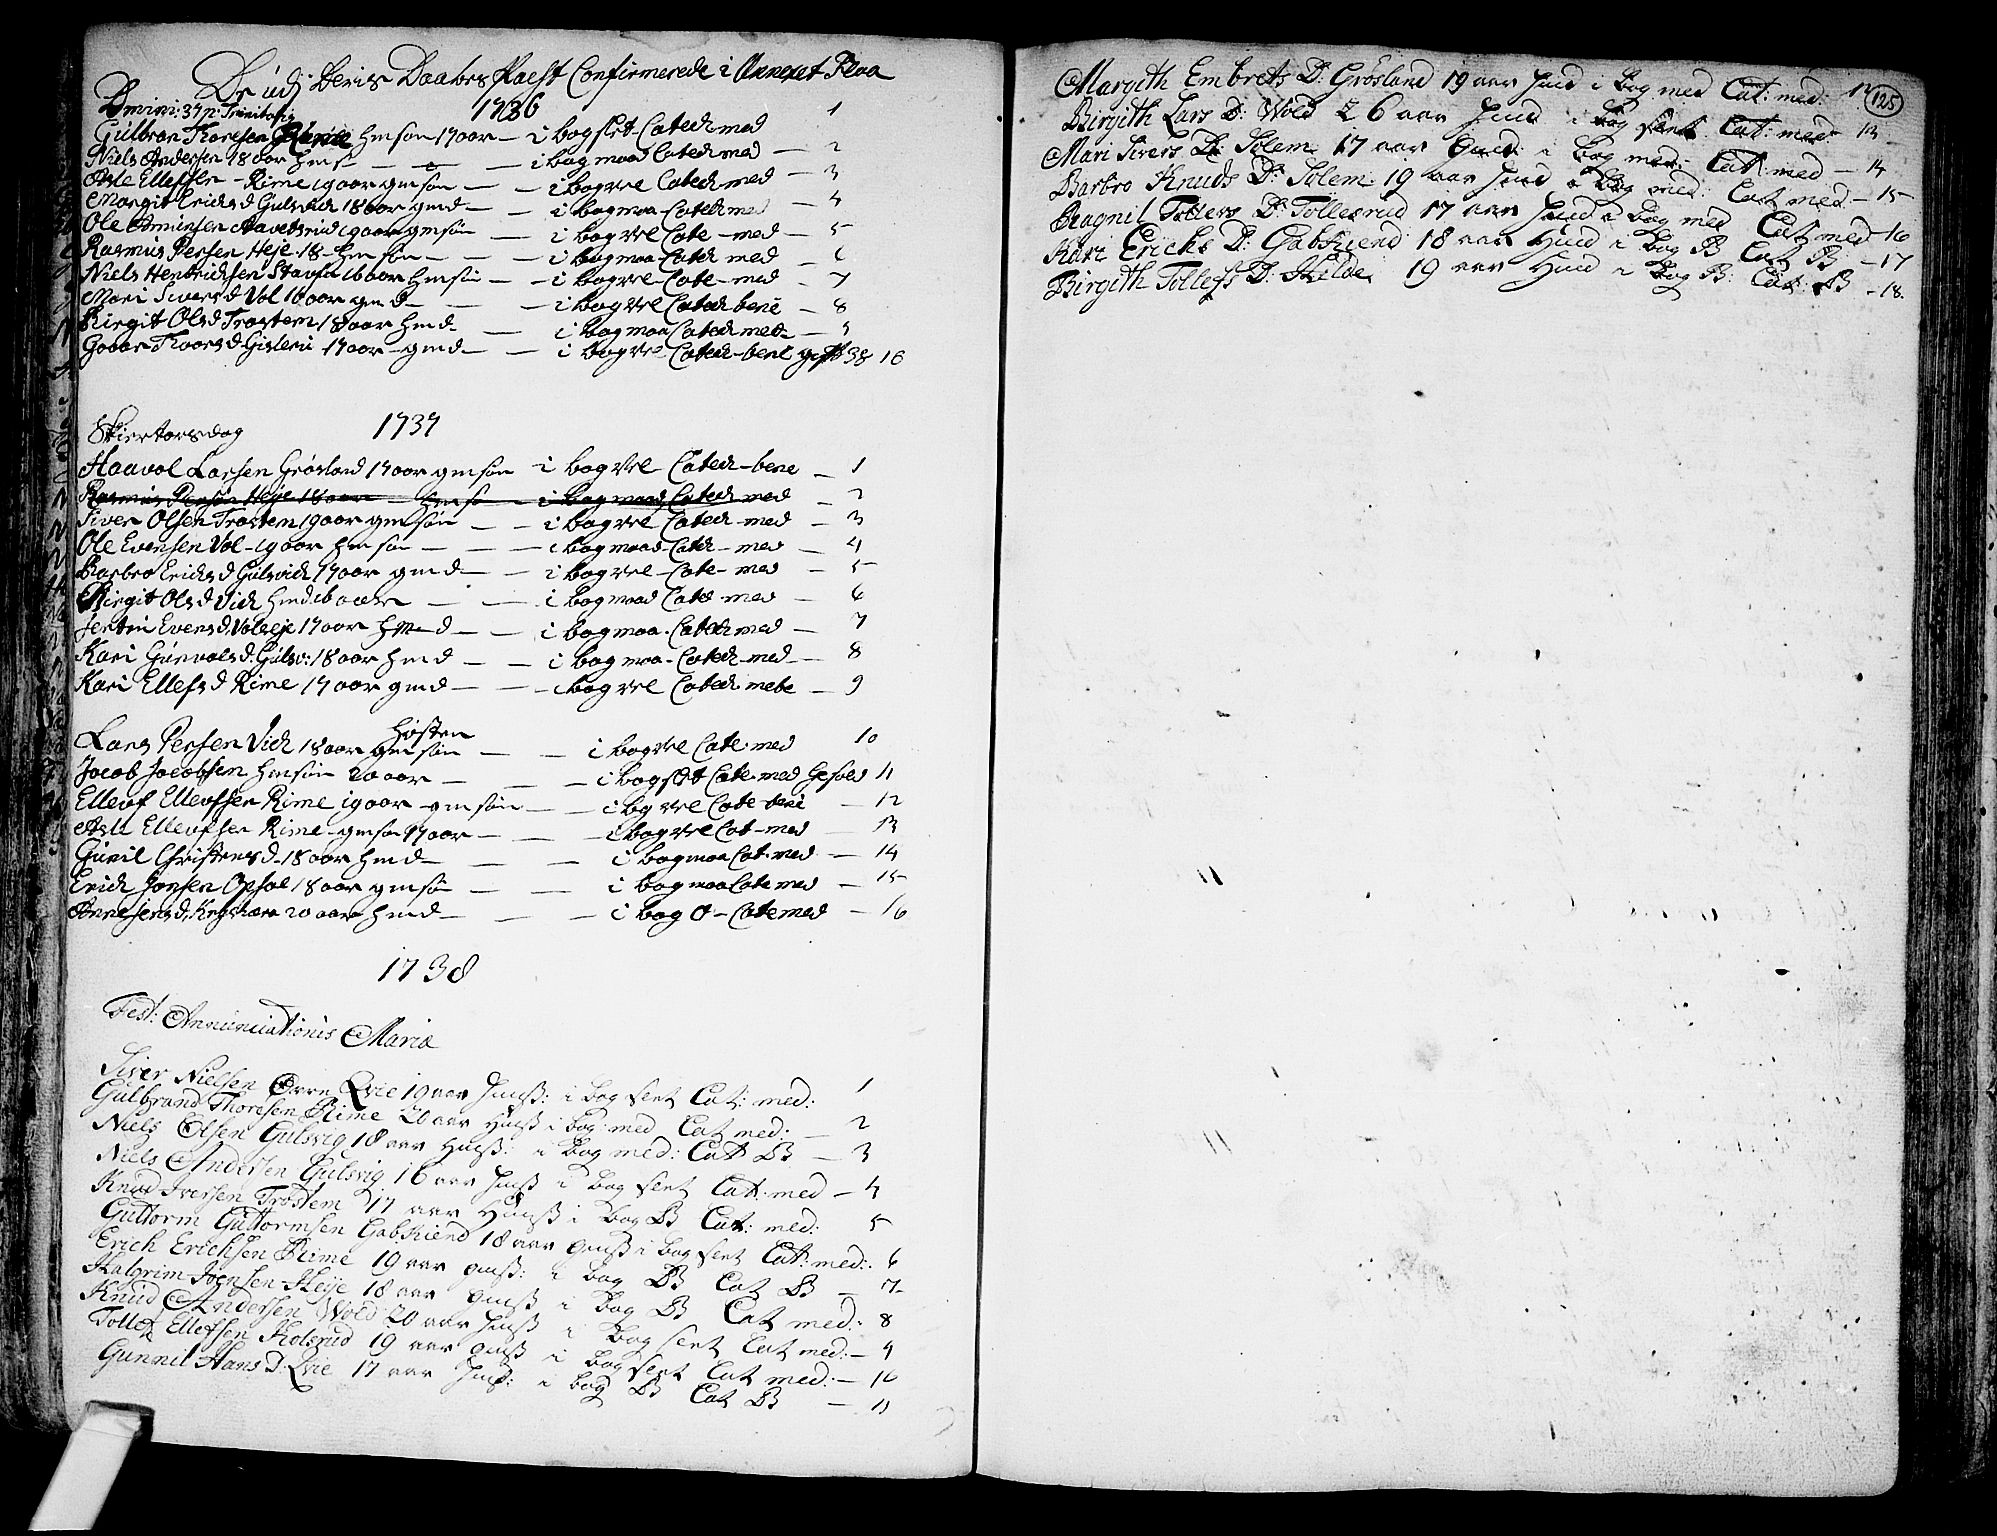 De udj Deris Daabes Pagt Confirmerede i Annexet Flaa
Dmini: 37 p: Trinitatis 1736
Gulbran Thoresen Rime hmsøn 17 aar — i bog slet Catech med 1
Niels Andersen 18 aar hmsø — — i bog maad Catech med — 2
Asle Ellefsen - Rime 19 aar gmsøn — — i bog vel Catech med — 3
Margit Ericksd Gulsvich 18 aar gmd — — i bog maa - Catech med — 4
Ole Amunsen Stavedsrud 19 aar gmsøn — i bog vel Cate - med — 5
Rasmus Persen Heje - 18 - hmsøn — — i bog maa - Catech med — 6
Niels Hentrichsen Stavn 16 aar hmsøn — — i bog vel - Cate - med — 7
Mari Siversd Vol 16 aar gmd — — — i bog vel Catech bene — 8
Birgit Olsd Trostem 18 aar hmd — — i bog maa Catech med — 9
Goaar Thoarsd Gisleri 17 aar - gmd — — i bog vel Catech - bene gift 38 10
Skiertorsdag 1737
Haavol Larsen Grøsland 17 aar gmsøn i bog vel Catech - bene — 1
Rasmus Persøn Heje 18 aar hmsø — i bog maad Catech med — 2
Siver Olsen Trostem 19 aar gmsøn — — i bog vel Catech - med — 3
Ole Evensen Vol - 19 aar hmsøn — — — i bog maad - Catech - med — 4
Barbro Ericksd Gulsvich 17 aar gmd — — i bog vel - Cate - med — 5
Birgit Olsd Vich hmd 16 aar — — i bog maad Cate med — 6
Jertru Evensd Volseje 17 aar hmd — — i bog maa - Catech med — 7
Kari Gunvalsd Gulsv: 18 aar hmd — — i bog maa - Catech - med — 8
Kari Ellefsd Rime 17 aar gmd — — i bog vel Catech mebe — 9
høsten
Lars Persen Vich 18 aar gmsøn — — i bog vel Cate med 10
Jacob Jacobsen hmsøn 20 aar — — i bog slet Cate med Gesvol 11
Ellevf Ellevfsen Rime 19 aar - gmsøn — — i bog vel Cate bene — 12
Asle Ellevfsen Rime - gmsøn 17 aar — — i bog vel Cat - med — 13
Gunil Christensd - 18 aar hmd — — — i bog maa Cat - med — 14
Erich Jonsen Opsal 18 aar gmsøn — — i bog maa Cate med — 15
Anne Jensd 20 aar hmd — — — i bog O - Cate med — 16
1738
Fest: Annunciationis Mariæ
Siver Nielsen Ørre Qvie 19 aar Hmß: i bog slet Cat: med: 1
Gulbrand Thoresen Rime 20 aar Hmß i bog med Cat med: — 2
Niels Olsen Gulsvig 18 aar Hmß: i bog med: Cat B — 3
Niels Andersen Gulsvig 16 aar Hmß i bog slet Cat: med — 4
Knud Iversen Trostem 17 aar Hmß i bog B Cat: med: 5
Guttorm Guttormsen Gabskiend 18 aar gmß i bog slet Cat: med: 6
Erich Erichsen Rime 19 aar gmß: i bog B Cat B — 7
Halgrim Joensen Heje 18 aar gmß i bog B Cat med: 8
Knud Andersen Wold 20 aar Hmß i bog slet Cat med: — 9
Tollef Ellefsen Kolsrud 19 aar gmß i bog slet Cat med: — 10
Gunnil Hans D: Qvie 17 aar Hmß: i bog B Cat B — 11
Margith Embrets D: Grøsland 19 aar Hmd i bog med Cat: med: 12
125
Birgith Lars D: Wold 26 aar Hmd i bog slet Cat: med 13
Mari Sivers D: Solem 17 aar Gmd: i bog med: Cat: med — 14
Barbro Knuds D: Solem 19 aar Hmd i bog med: Cat med — 15
Ragnil Tollefs D: Tollesrud 17 aar Hmd i bog med Cat med 16
Kari Erichs D: Gabskiend 18 aar Hmd i bog B Cat B — 17
Birgith Tollefs D: Hilde 19 aar Hmd i bog B: Cat: B — 18